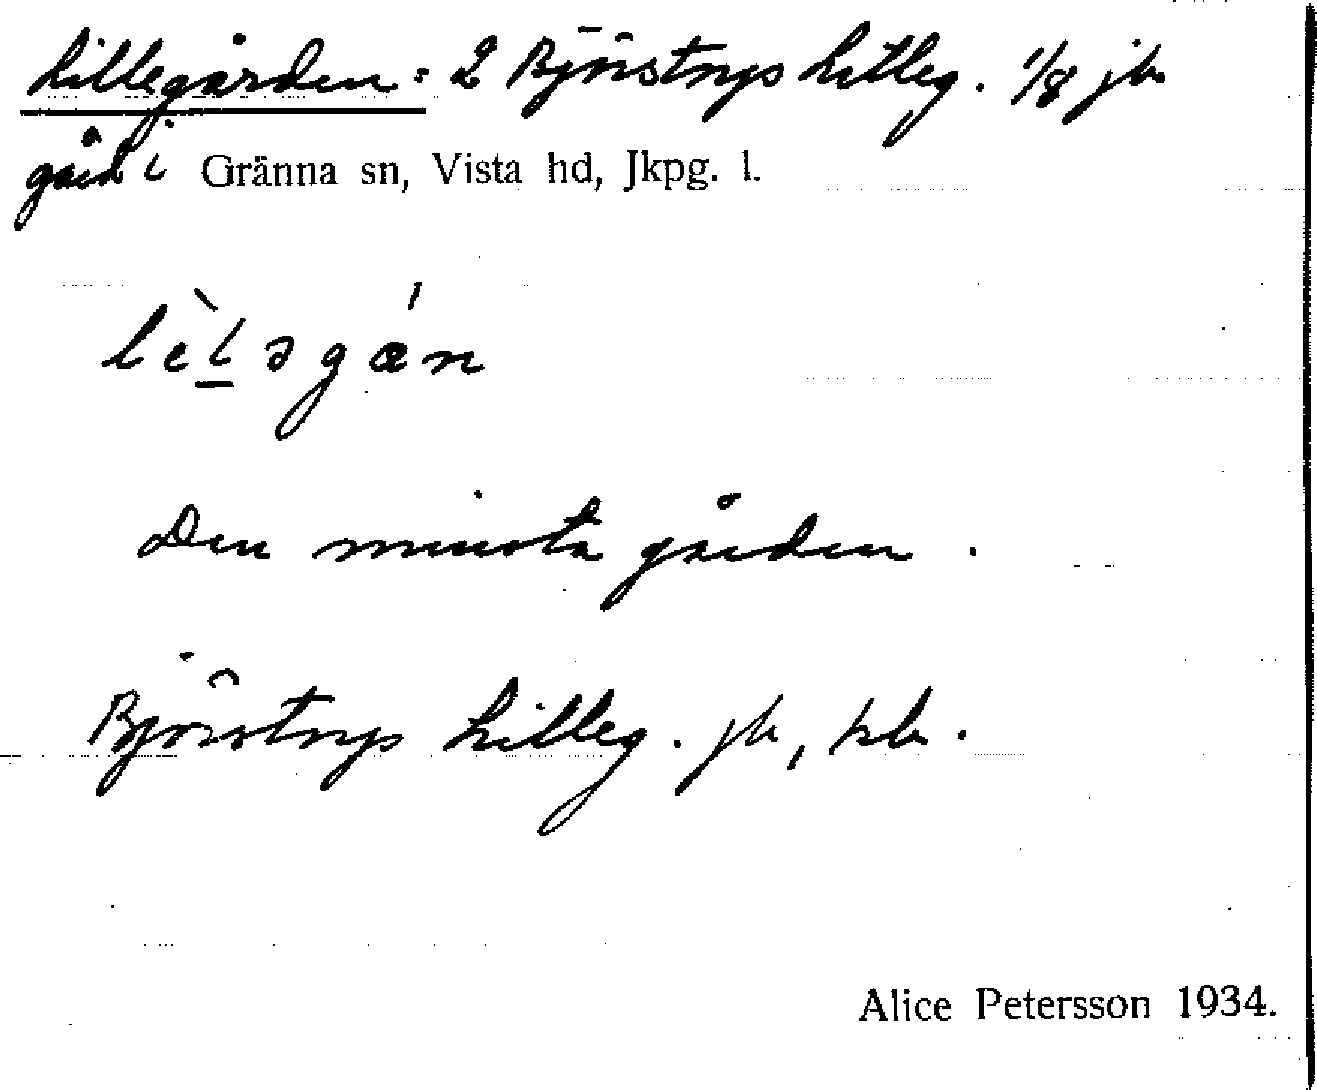 Lillegården: 2 Björstorps Lilleg. 1/8 jb
gård i Gränna sn, Vista hd, Jkpg. l.
lèl̠əgán
Den minsta gården.
Björstorps Lilleg. jb, kb.
Alice Petersson 1934.